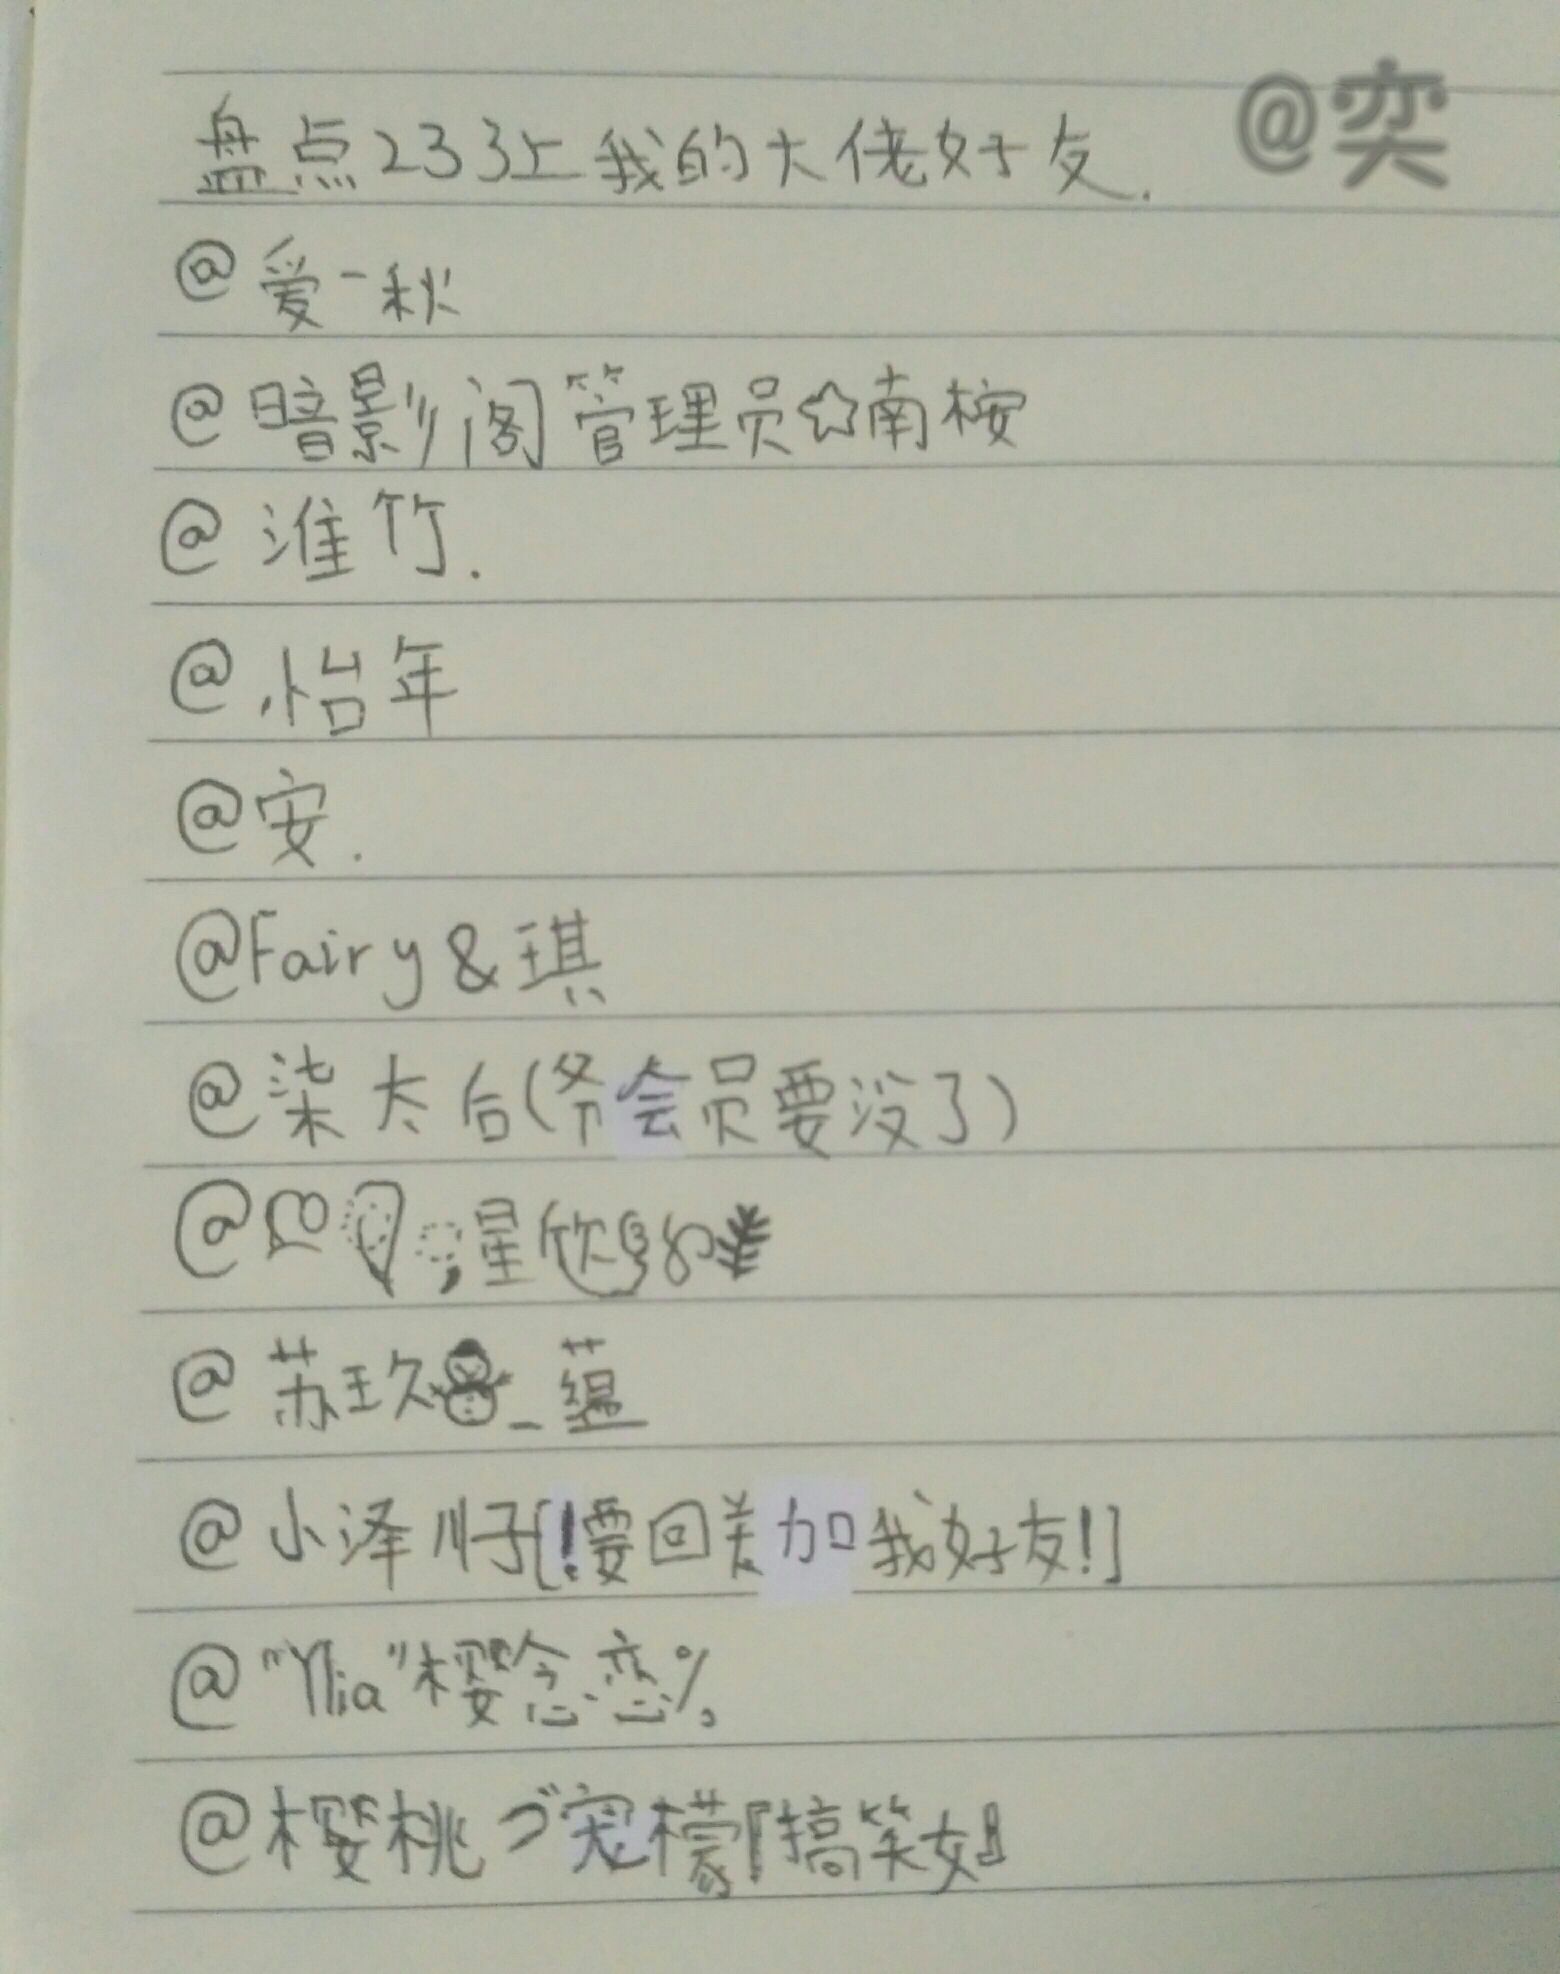 盘点233上我的大佬好友.
@奕
@爱一秋
@暗影阁管理员☆南桉
@淮竹.
@.怡年
@安.
@Fairy&琪
@柒太后(爷会员要没了)
@星欣
@苏玖☃_蕴
@小泽川子[!要回关加我好友!]
@"Ylia"樱念恋%
@樱桃づ宠檬『搞笑女』